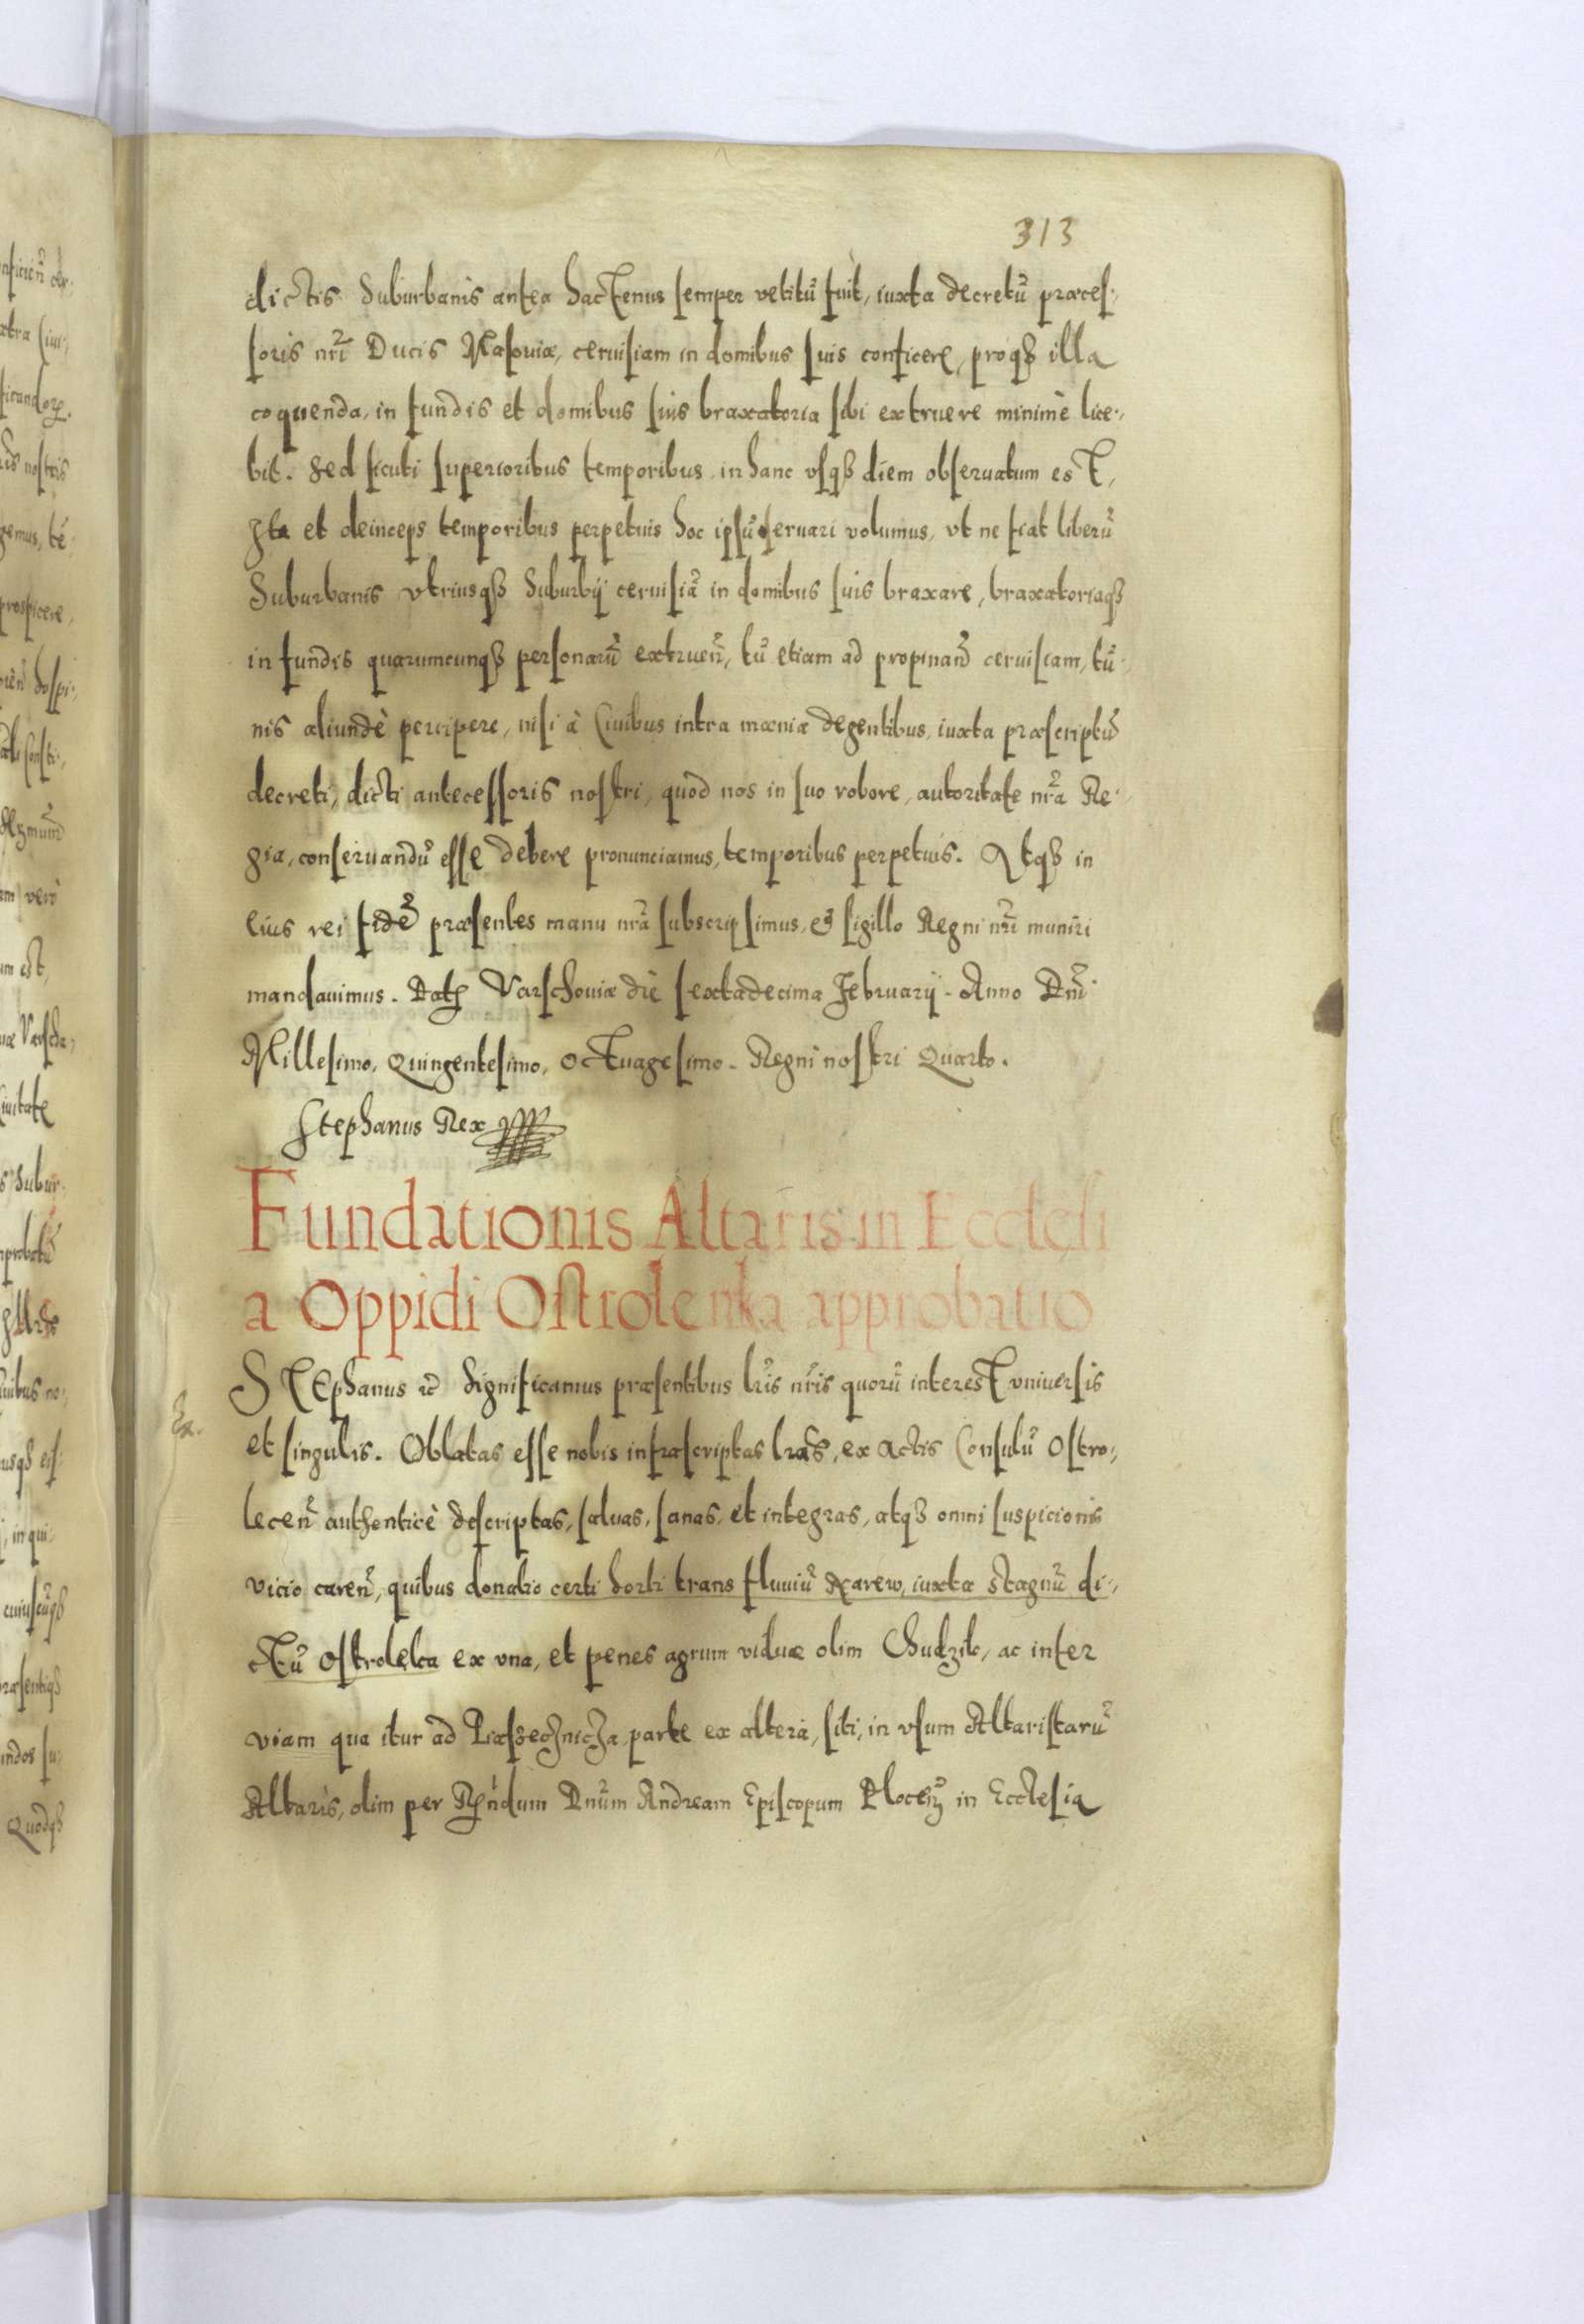 313
dictis Suburbanis antea hactenus semper vetitū fuit, iuxta decretū præces,
soris nr̄i Ducis Masoviæ, cervisiam in domibus suis conficere, proq3 illa
coquenda, in fundis et domibus suis braxatoria sibi extruere minimè lice,
bit. Sed sicuti superioribus temporibus in hanc vsq3 diem observatum est,
Ita et deinceps temporibus perpetuis hoc ipsū servari volumus, vt ne fiat liberū
Suburbanis vtriusq3 Suburbij cervisiā in domibus suis braxare, braxatoriaq3
in fundis quarumcunq3 personarū extruen̄, tū etiam ad propinand̄ cervisiam, tū,
nis aliundè percipere, nisi à Civibus intra mœnia degentibus, iuxta præscriptū
decreti, dicti antecessoris nostri, quod nos in suo robore, autoritate nr̄a Re,
gia, conservandū esse debere pronunciamus, temporibus perpetuis. Atq3 in
Eius rei fidē præsentes manu nr̄a subscripsimus, & sigillo Regni nr̄i muniri
mandavimus. Datȝ Varschoviæ die sextadecima February. Anno Dn̄i
Millesimo, Quingentesimo, Octuagesimo. Regni nostri Quarto.
Stephanus Rex
Fundationis Altaris in Ecclesi
a Oppidi Ostrolenka approbatio
STEphanus &c̄ Significamus præsentibus lr̄is nr̄is quorū interest vniversis
et singulis. Oblatas esse nobis infrascriptas lr̄as, ex Actis Consulū Ostro,
lecen̄ authenticè descriptas, salvas, sanas, et integras, atq3 omni suspicionis
vicio caren̄, quibus donatio certi horti trans fluviū Narew, iuxta stagnū di,
ctū Ostrolęka ex vna, et penes agrum viduæ olim Chudzik, ac inter
viam qua itur ad Piasecznicza, parte ex altera, siti, in vsum Altaristarū
Altaris, olim per Rn̄dum Dnūm Andream Episcopum Plocen̄ in Ecclesia